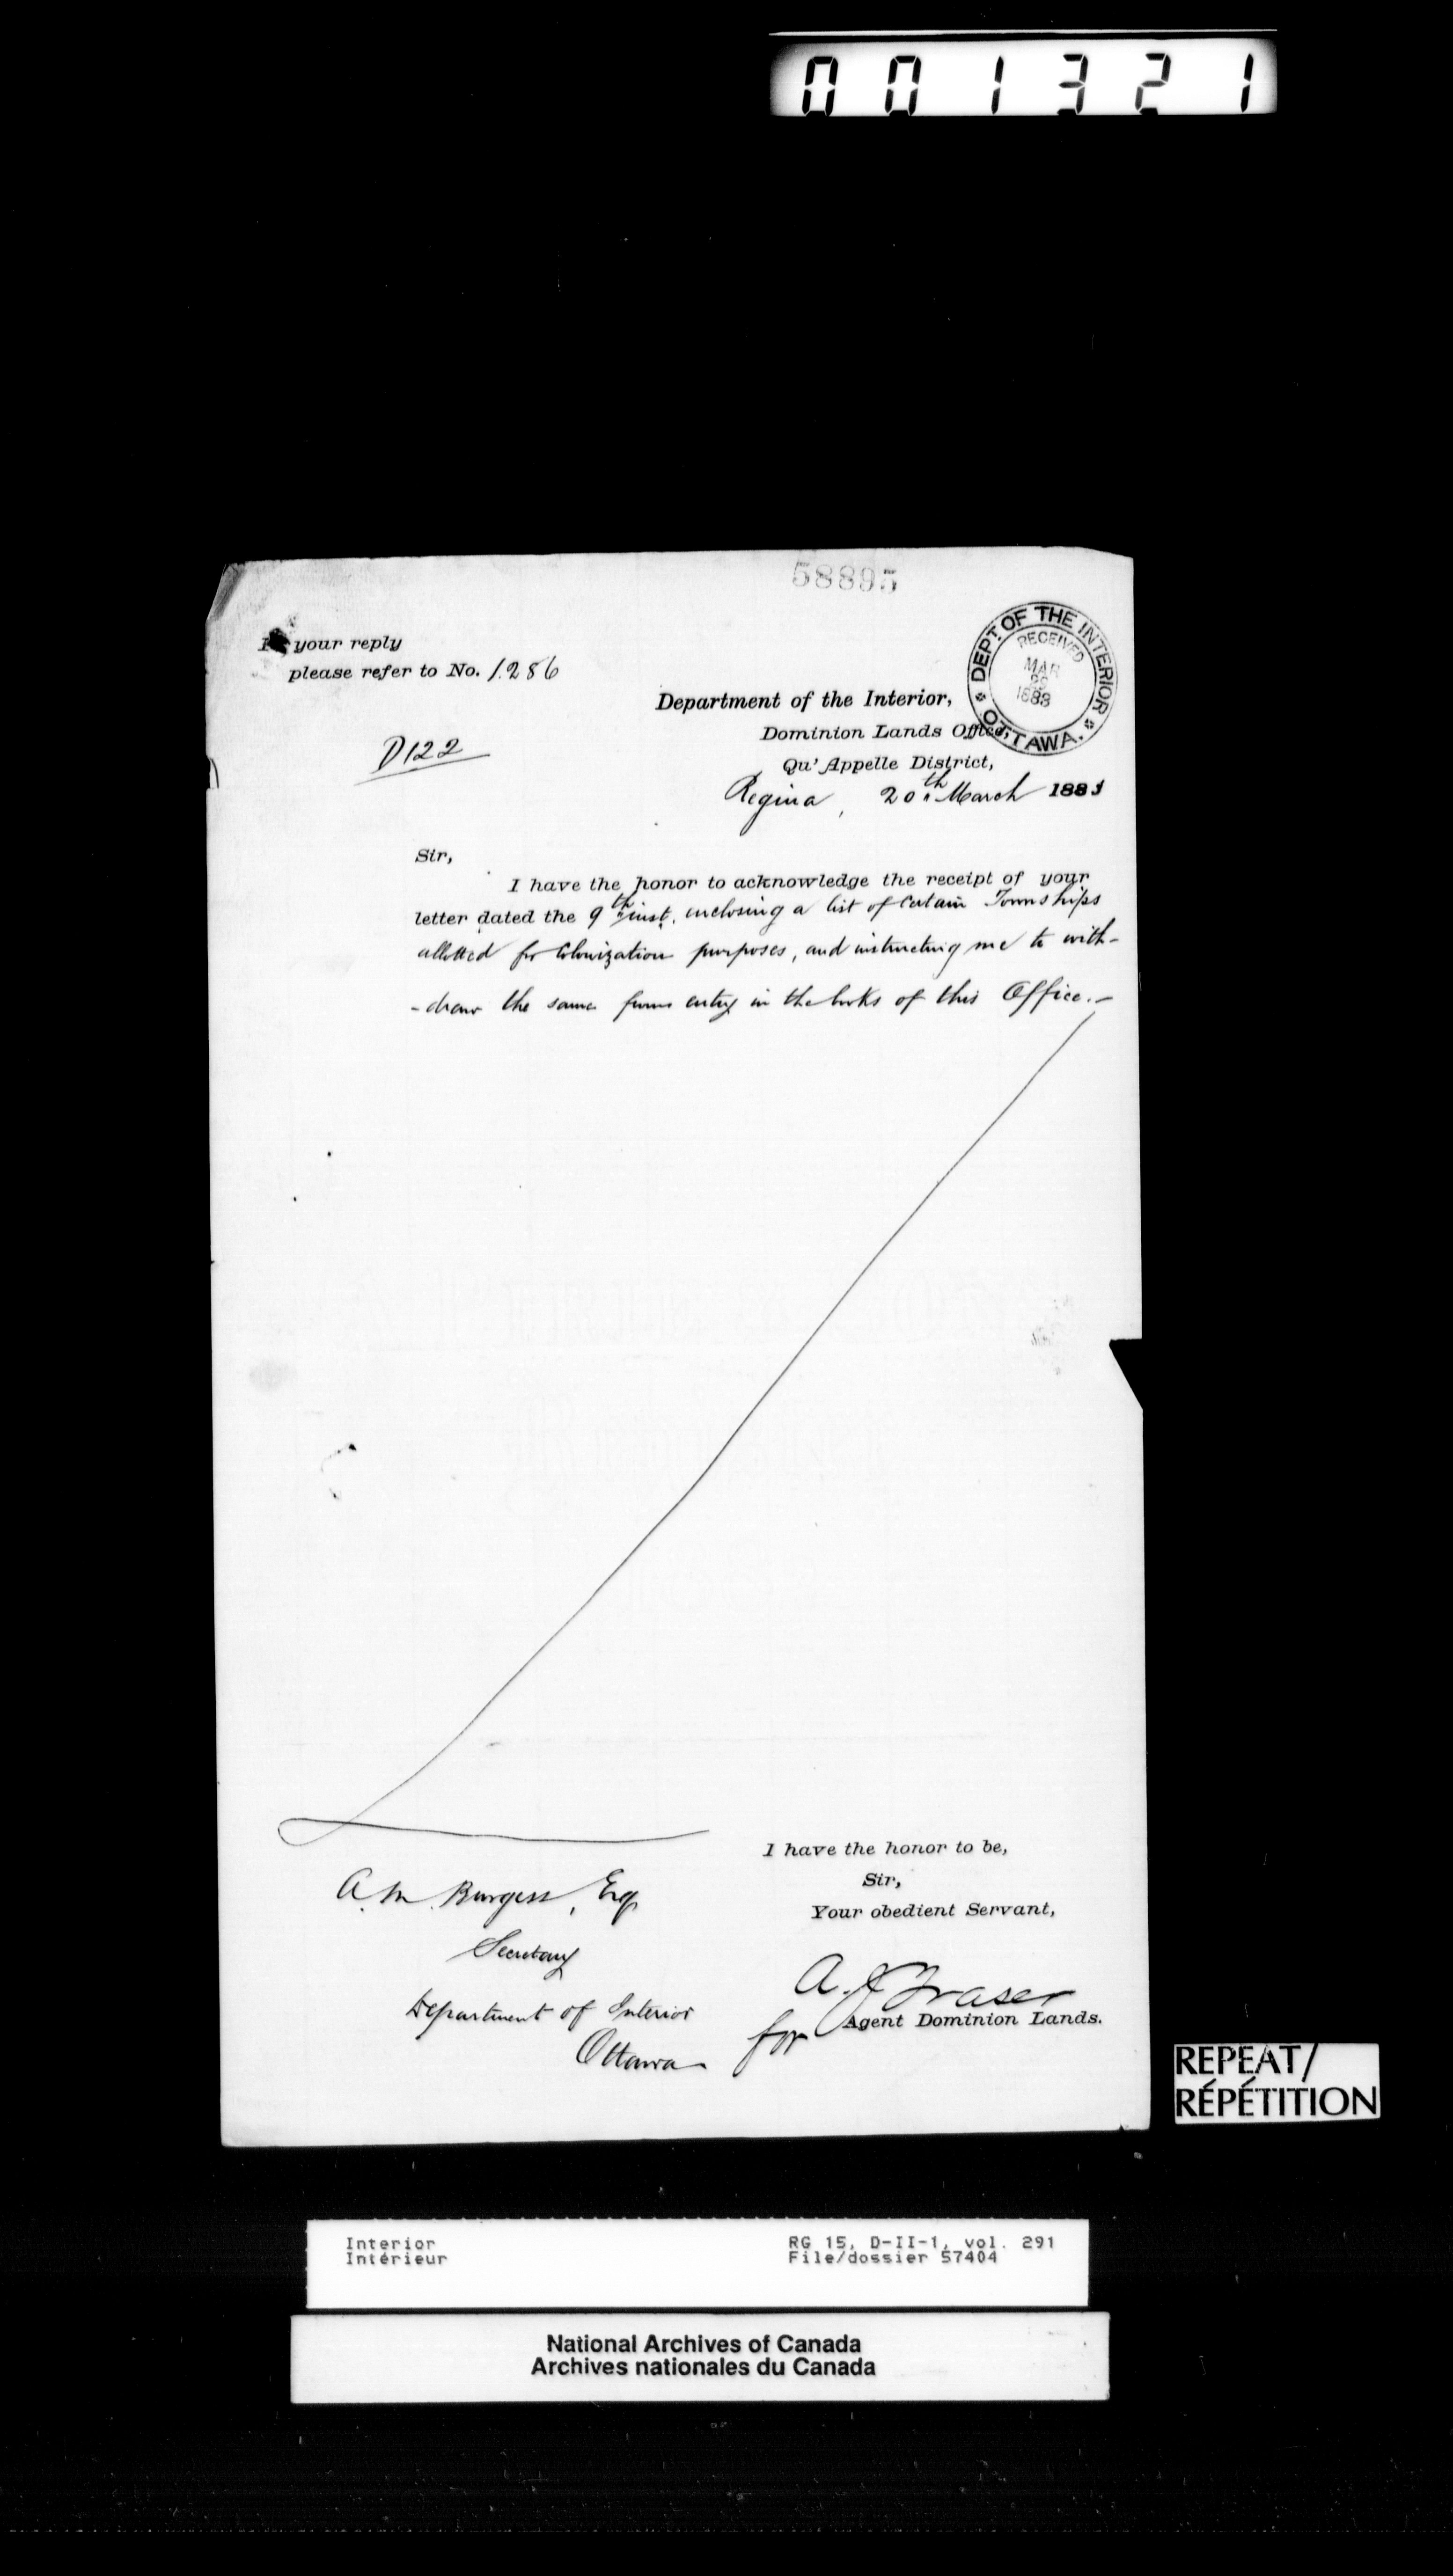 001321
58895
In your reply
please refer to No. 1.286
DEPT. OF THE INTERIOR
RECEIVED
MAR
1883
OTTAWA.
Department of the Interior,
Dominion Lands Office,
D122
Qu'Appelle District,
Regina, 20th March 1883
Sir,
I have the honor to acknowledge the receipt of your
letter dated the 9th inst. enclosing a list of Certain Townships
allotted for Colonization purposes, and instructing me to with-
-draw the same from entry in the books of this Office.-
I have the honor to be,
Sir,
Your obedient Servant,
A. M. Burgess, Esq
Secretary
Department of Interior
Ottawa
A. J. Fraser
for Agent Dominion Lands.
REPEAT/
RÉPÉTITION
Interior
Intérieur
RG 15, D-II-1, vol. 291
File/dossier 57404
National Archives of Canada
Archives nationales du Canada